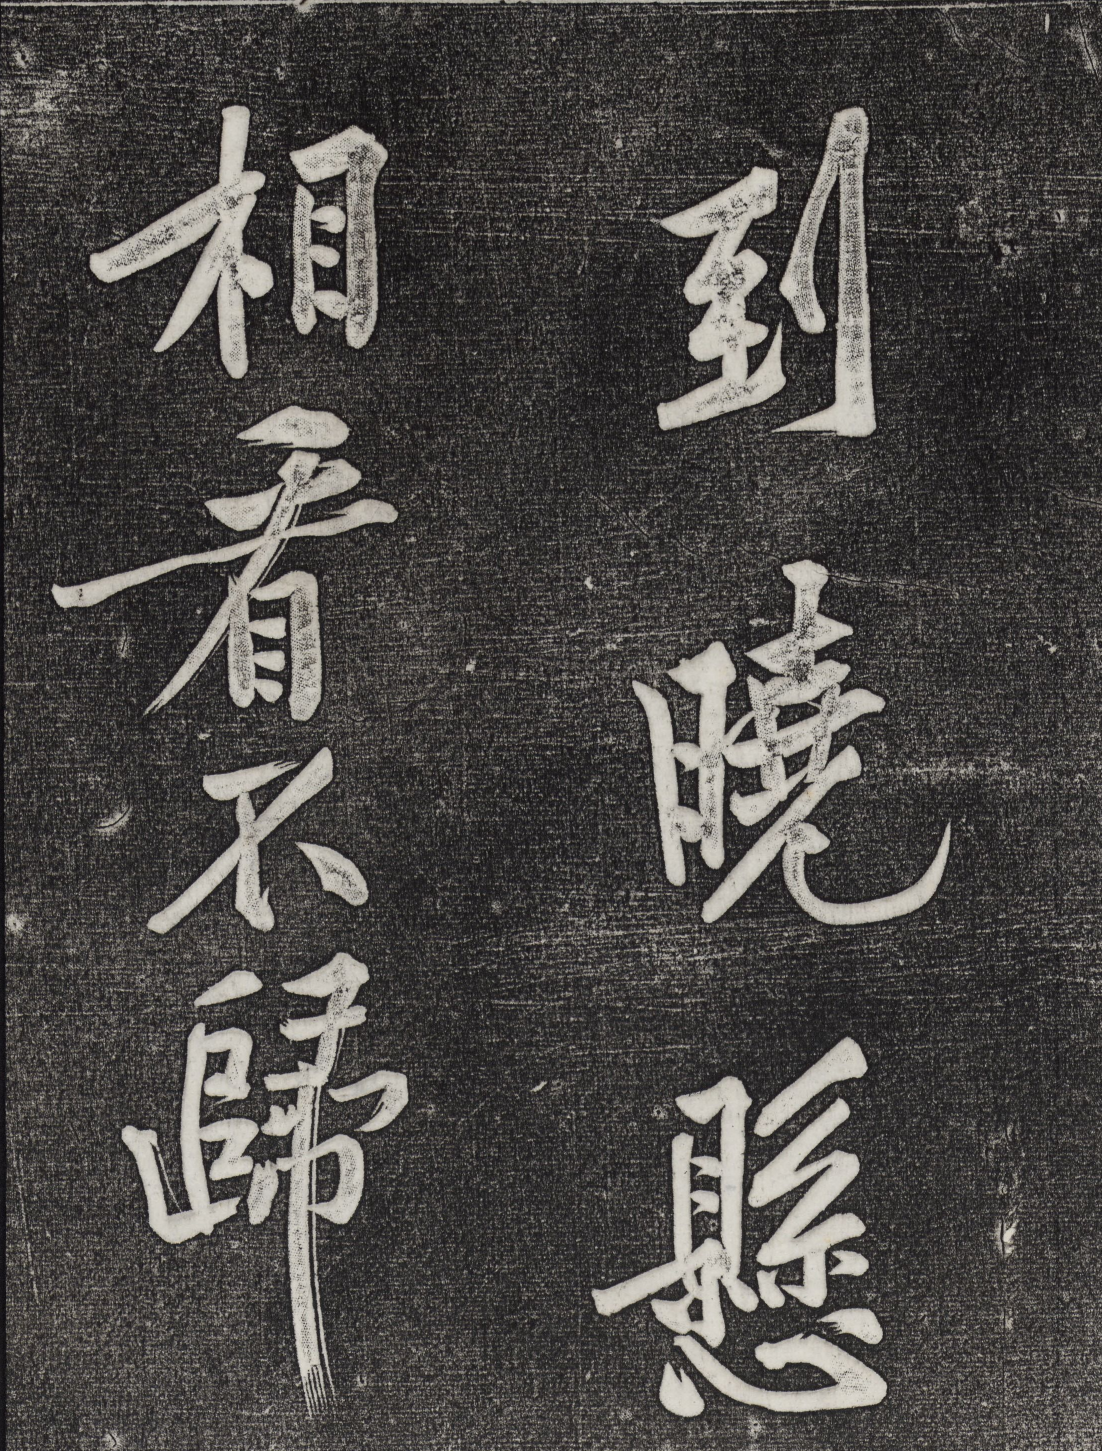 到曉懸
相看不歸